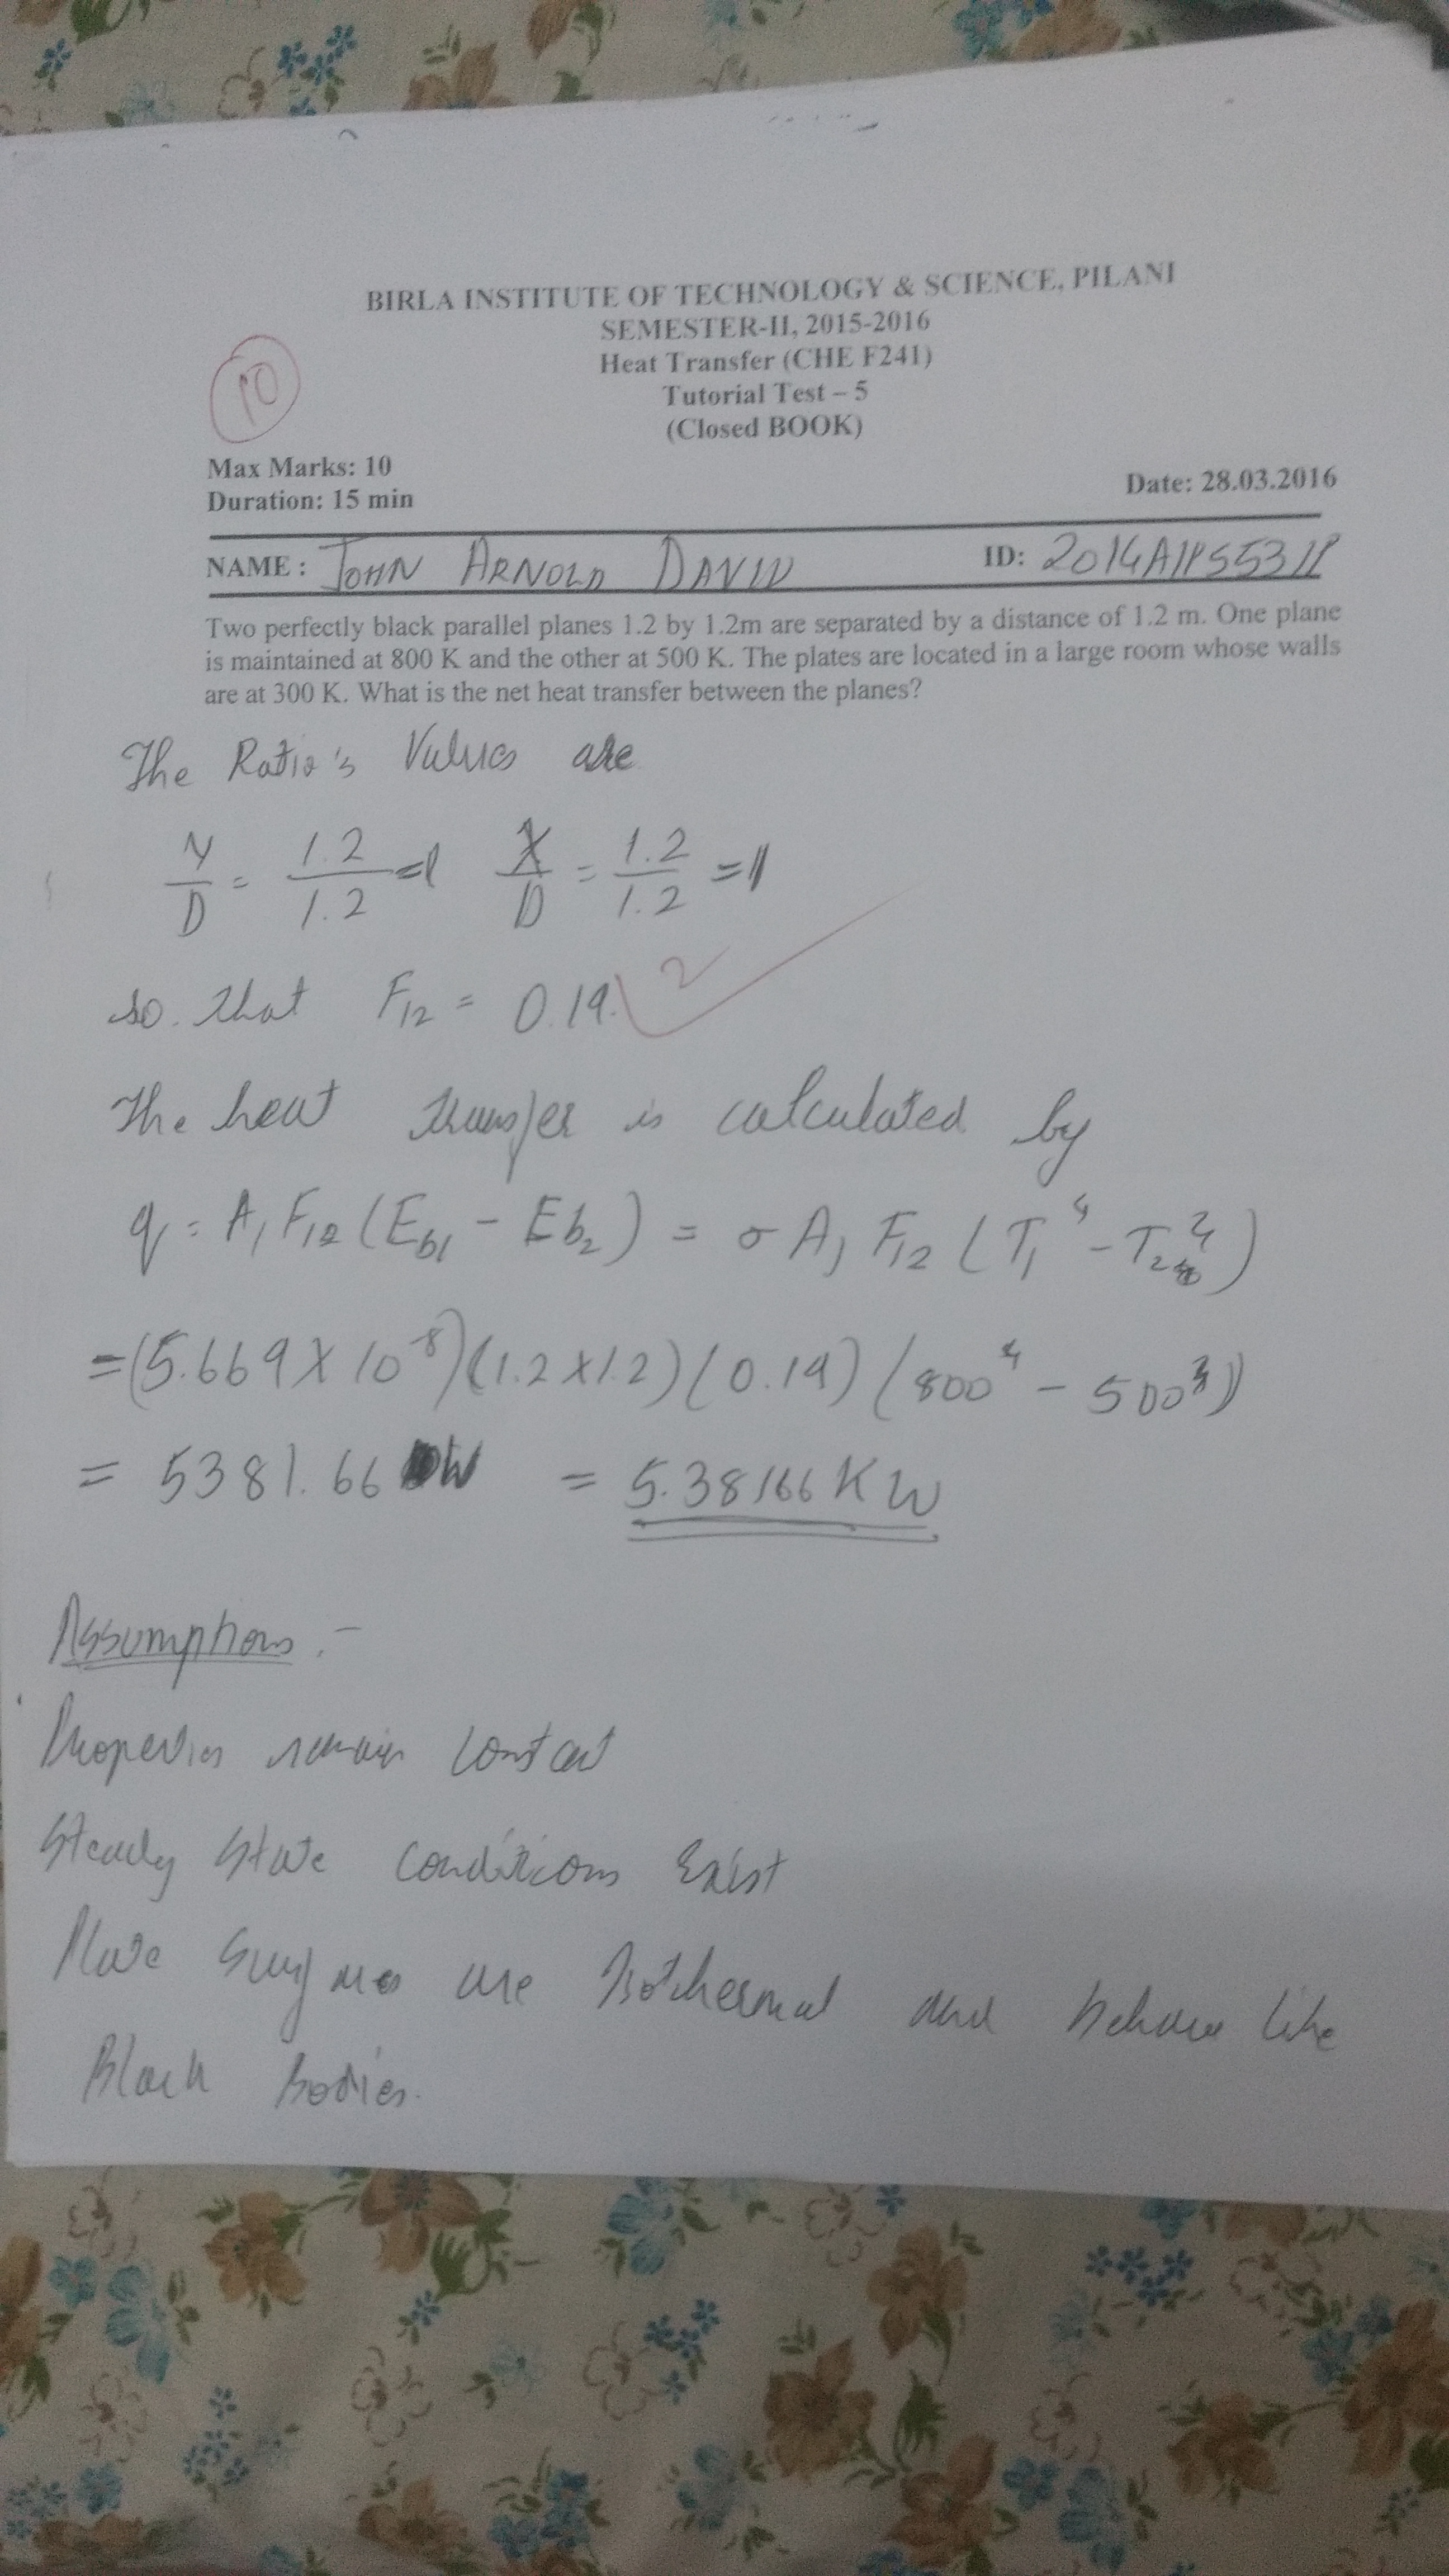 BIRLA INSTITUTE OF TECHNOLOGY & SCIENCE, PILANI
SEMESTER-II, 2015-2016
Heat Transfer (CHE F241)
Tutorial Test – 5
(Closed BOOK)
10
Max Marks: 10
Date: 28.03.2016
Duration: 15 min
NAME : JOHN ARNOLD DAVID ID: 2014A1PS531P
Two perfectly black parallel planes 1.2 by 1.2m are separated by a distance of 1.2 m. One plane
is maintained at 800 K and the other at 500 K. The plates are located in a large room whose walls
are at 300 K. What is the net heat transfer between the planes?
The Ratio's Values are
Y/D = 1.2/1.2 = 1 X/D = 1.2/1.2 = 1
so that F12 = 0.19. 2
The heat transfer is calculated by
q = A1 F12 (Eb1 - Eb2) = σ A1 F12 (T1^4 - T2^4)
= (5.669 X 10^-8)(1.2 X 1.2)(0.19)(800^4 - 500^4)
= 5381.66 W = 5.38166 KW
Assumptions :-
Properties remain constant
Steady State Conditions Exist
Plate Surfaces are Isothermal and behave like
Black Bodies.